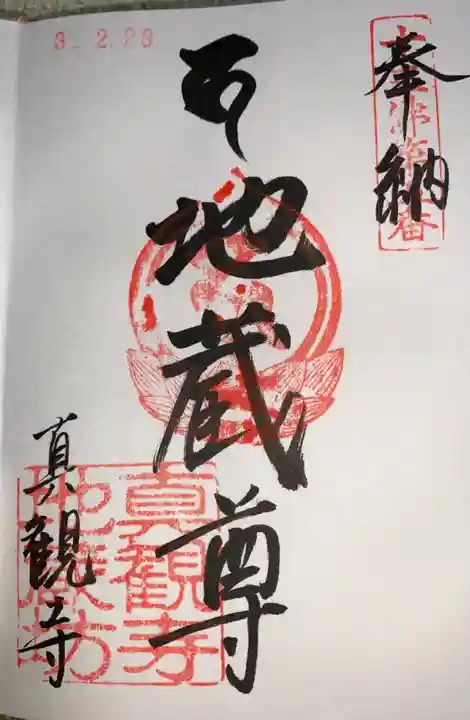 奉納
地蔵尊
真観寺
真観寺
地蔵坊
3.2.23